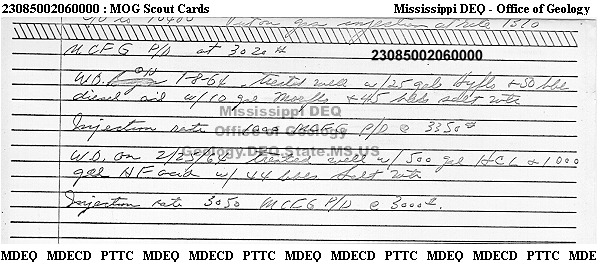 23085002060000 : MOG Scout Cards Mississippi DEQ - Office of Geology
to 10400 gas injection at rate 1510
MCFG P/D at 3020#
23085002060000
W.O. 1-8-64 treated well w/25 gals Hyflo + 50 bbls
diesel oil w/10 gal Morflo + 45 bbls salt wtr
Mississippi DEQ
Injection rate MCFG P/D @ 3350#
Office of Geology
Geology.DEQ.State.MS.US
W.O. on 2/25/64 treated well w/500 gal HCL & 1000
gal HF acid w/44 bbls salt wtr
Injection rate 3050 MCFG P/D @ 3000#.
MDEQ MDECD PTTC MDEQ MDECD PTTC MDEQ MDECD PTTC MDEQ MDECD PTTC MDE